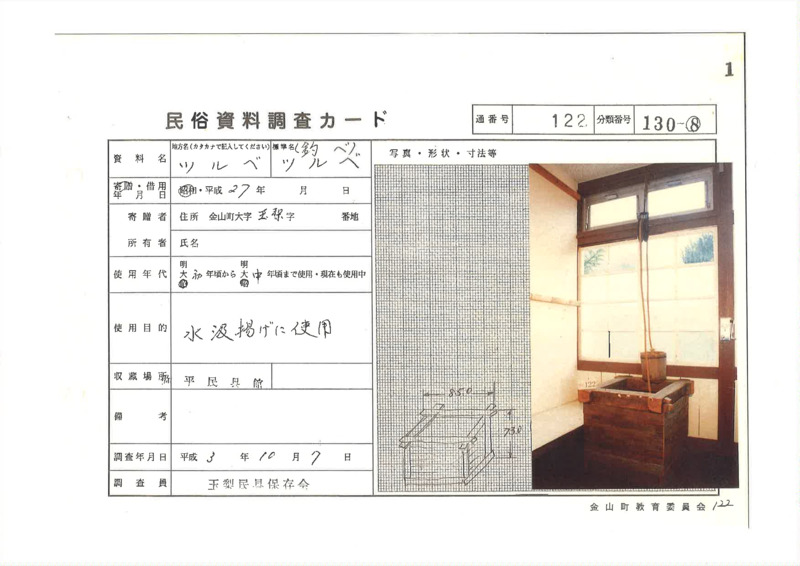 1
民俗資料調査カード
通番号 122 分類番号 130-⑧
資料名
地方名(カタカナで記入してください) ツルベ
標準名(釣べ) ツルベ
写真・形状・寸法等
寄贈・借用年月日 昭和・平成 27年 月 日
寄贈者 住所 金山町大字玉梨字 番地
所有者 氏名
使用年代 明大昭 初年頃から 明大昭 中年頃まで使用・現在も使用中
使用目的 水汲揚げに使用
収蔵場所 平民具館
備考
調査年月日 平成3年10月7日
調査員 玉梨民具保存会
85.0
73.0
122
金山町教育委員会 122